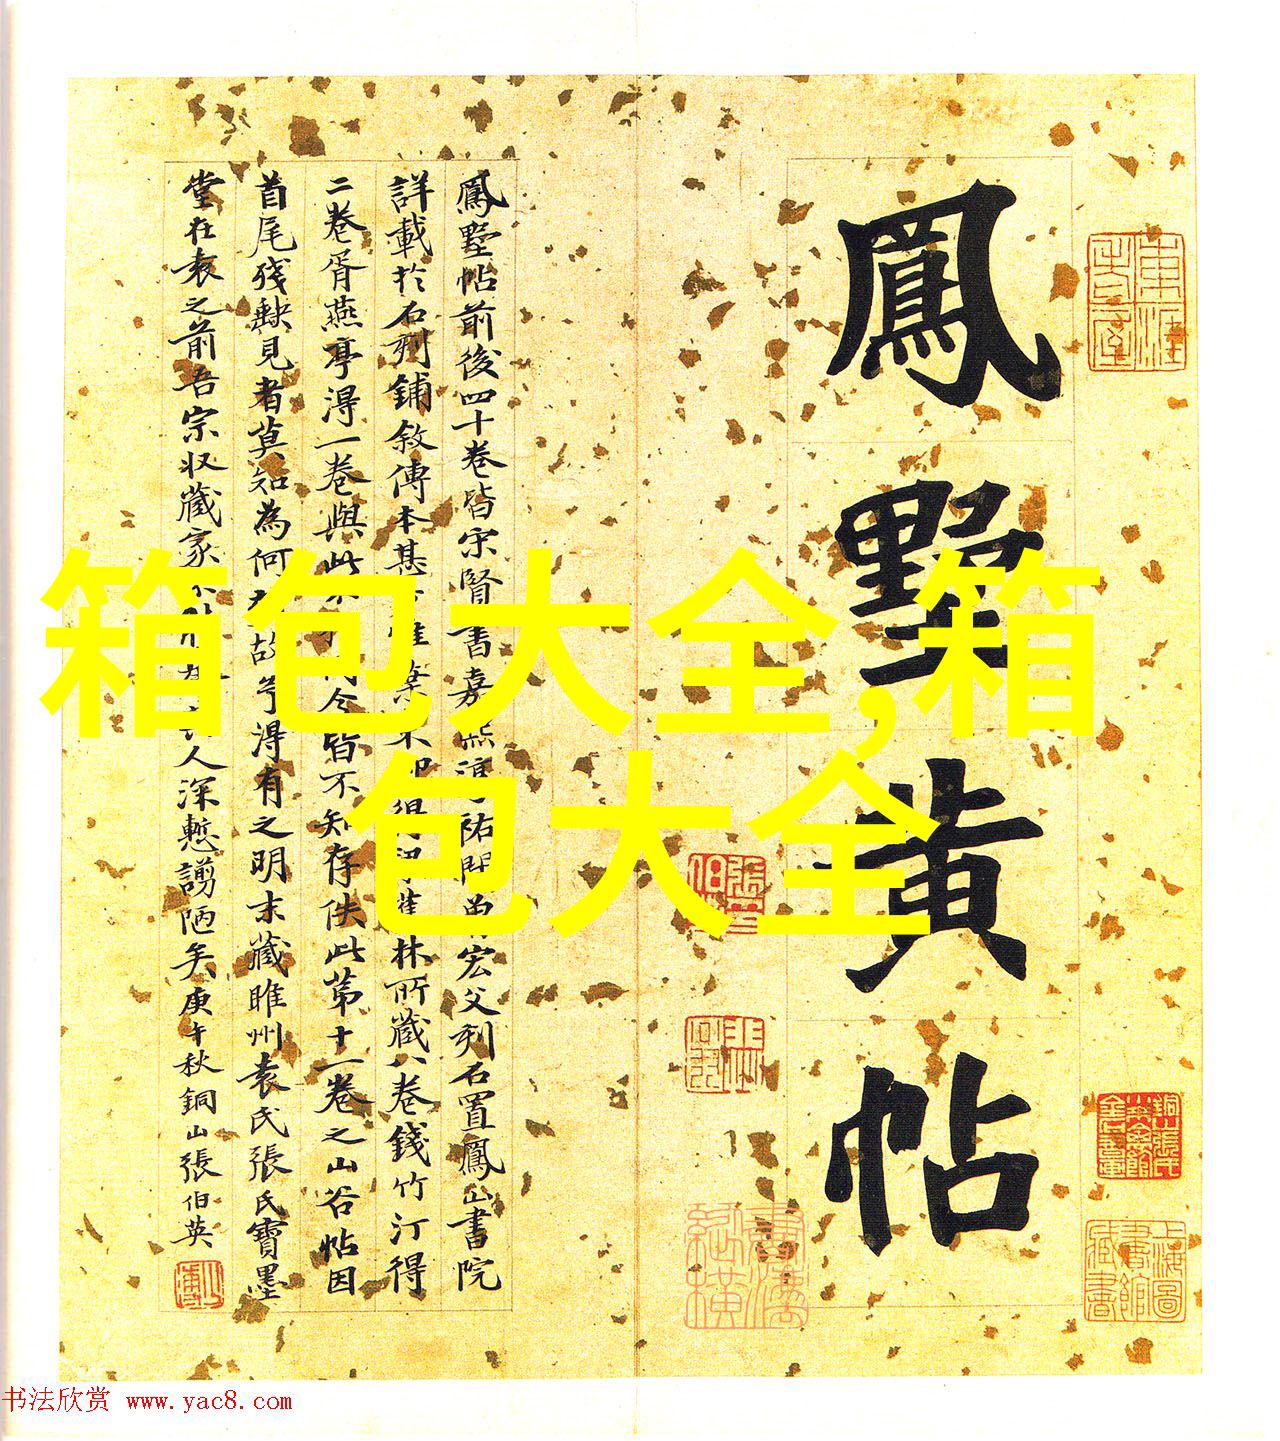 箱包大全,箱
包大全
鳳墅黃帖
鳳墅帖前後四十卷皆宋賢書嘉熙淳祐間曾宏父刻石置鳳山書院
詳載於石刻鋪敘傳本甚 惟 林所藏八卷錢竹汀得
二卷胥燕亭得一卷與此 今皆不知存佚此第十一卷之山谷帖因
首尾殘缺見者莫知為何 故 得有之明末藏睢州袁氏張氏寶墨
堂在袁之前吾宗收藏家 人深慙謭陋矣庚午秋銅山張伯英
上海圖書館藏書
书法欣赏 www.yac8.com